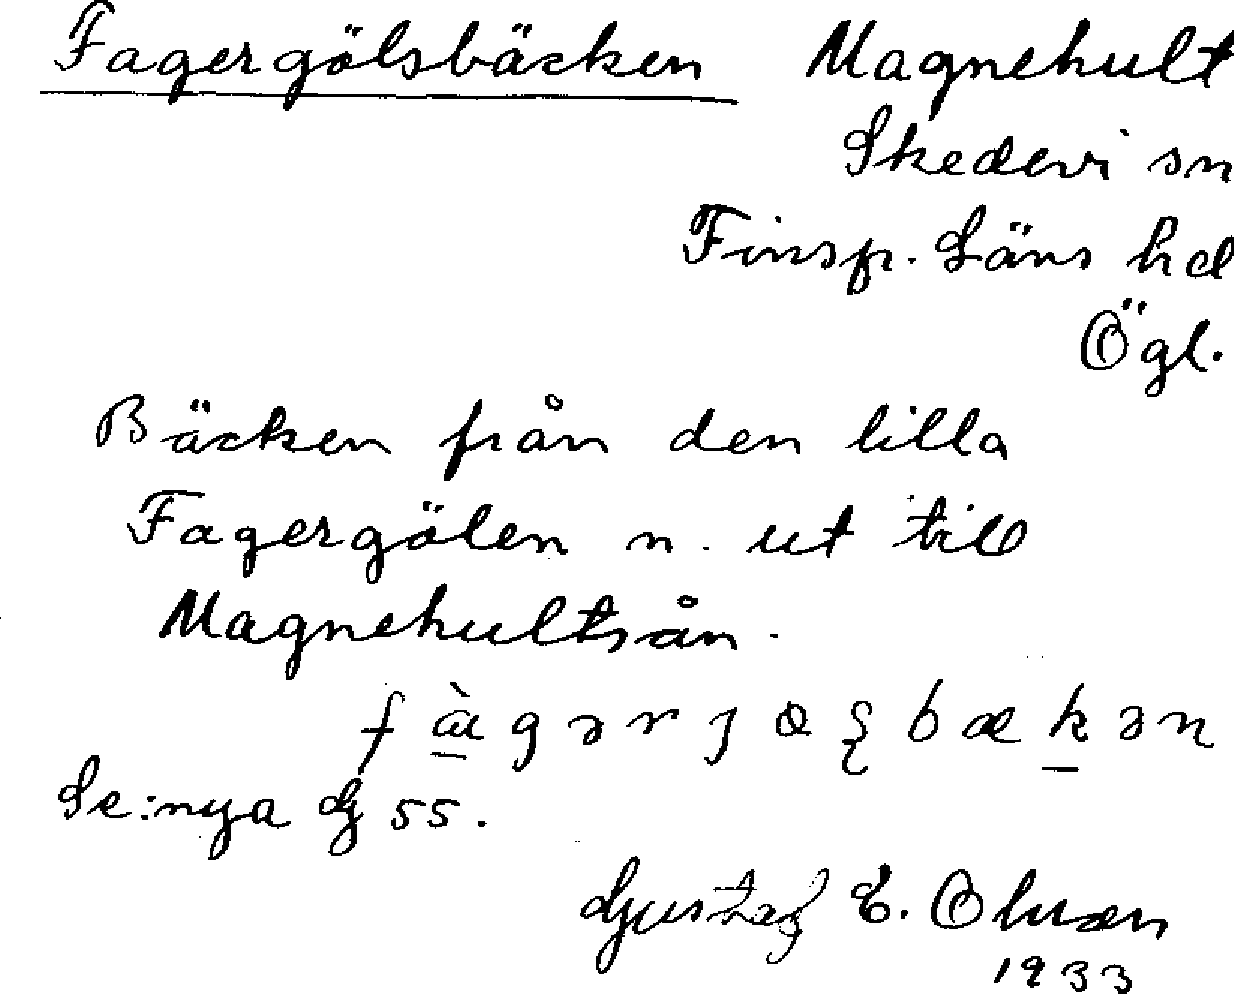 Fagergölsbäcken Magnehult
Skedevi sn
Finsp. Läns hd
Ögl.
Bäcken från den lilla
Fagergölen n. ut till
Magnehultsån.
Se: nya G 55.
Gustaf E. Olsson
1933